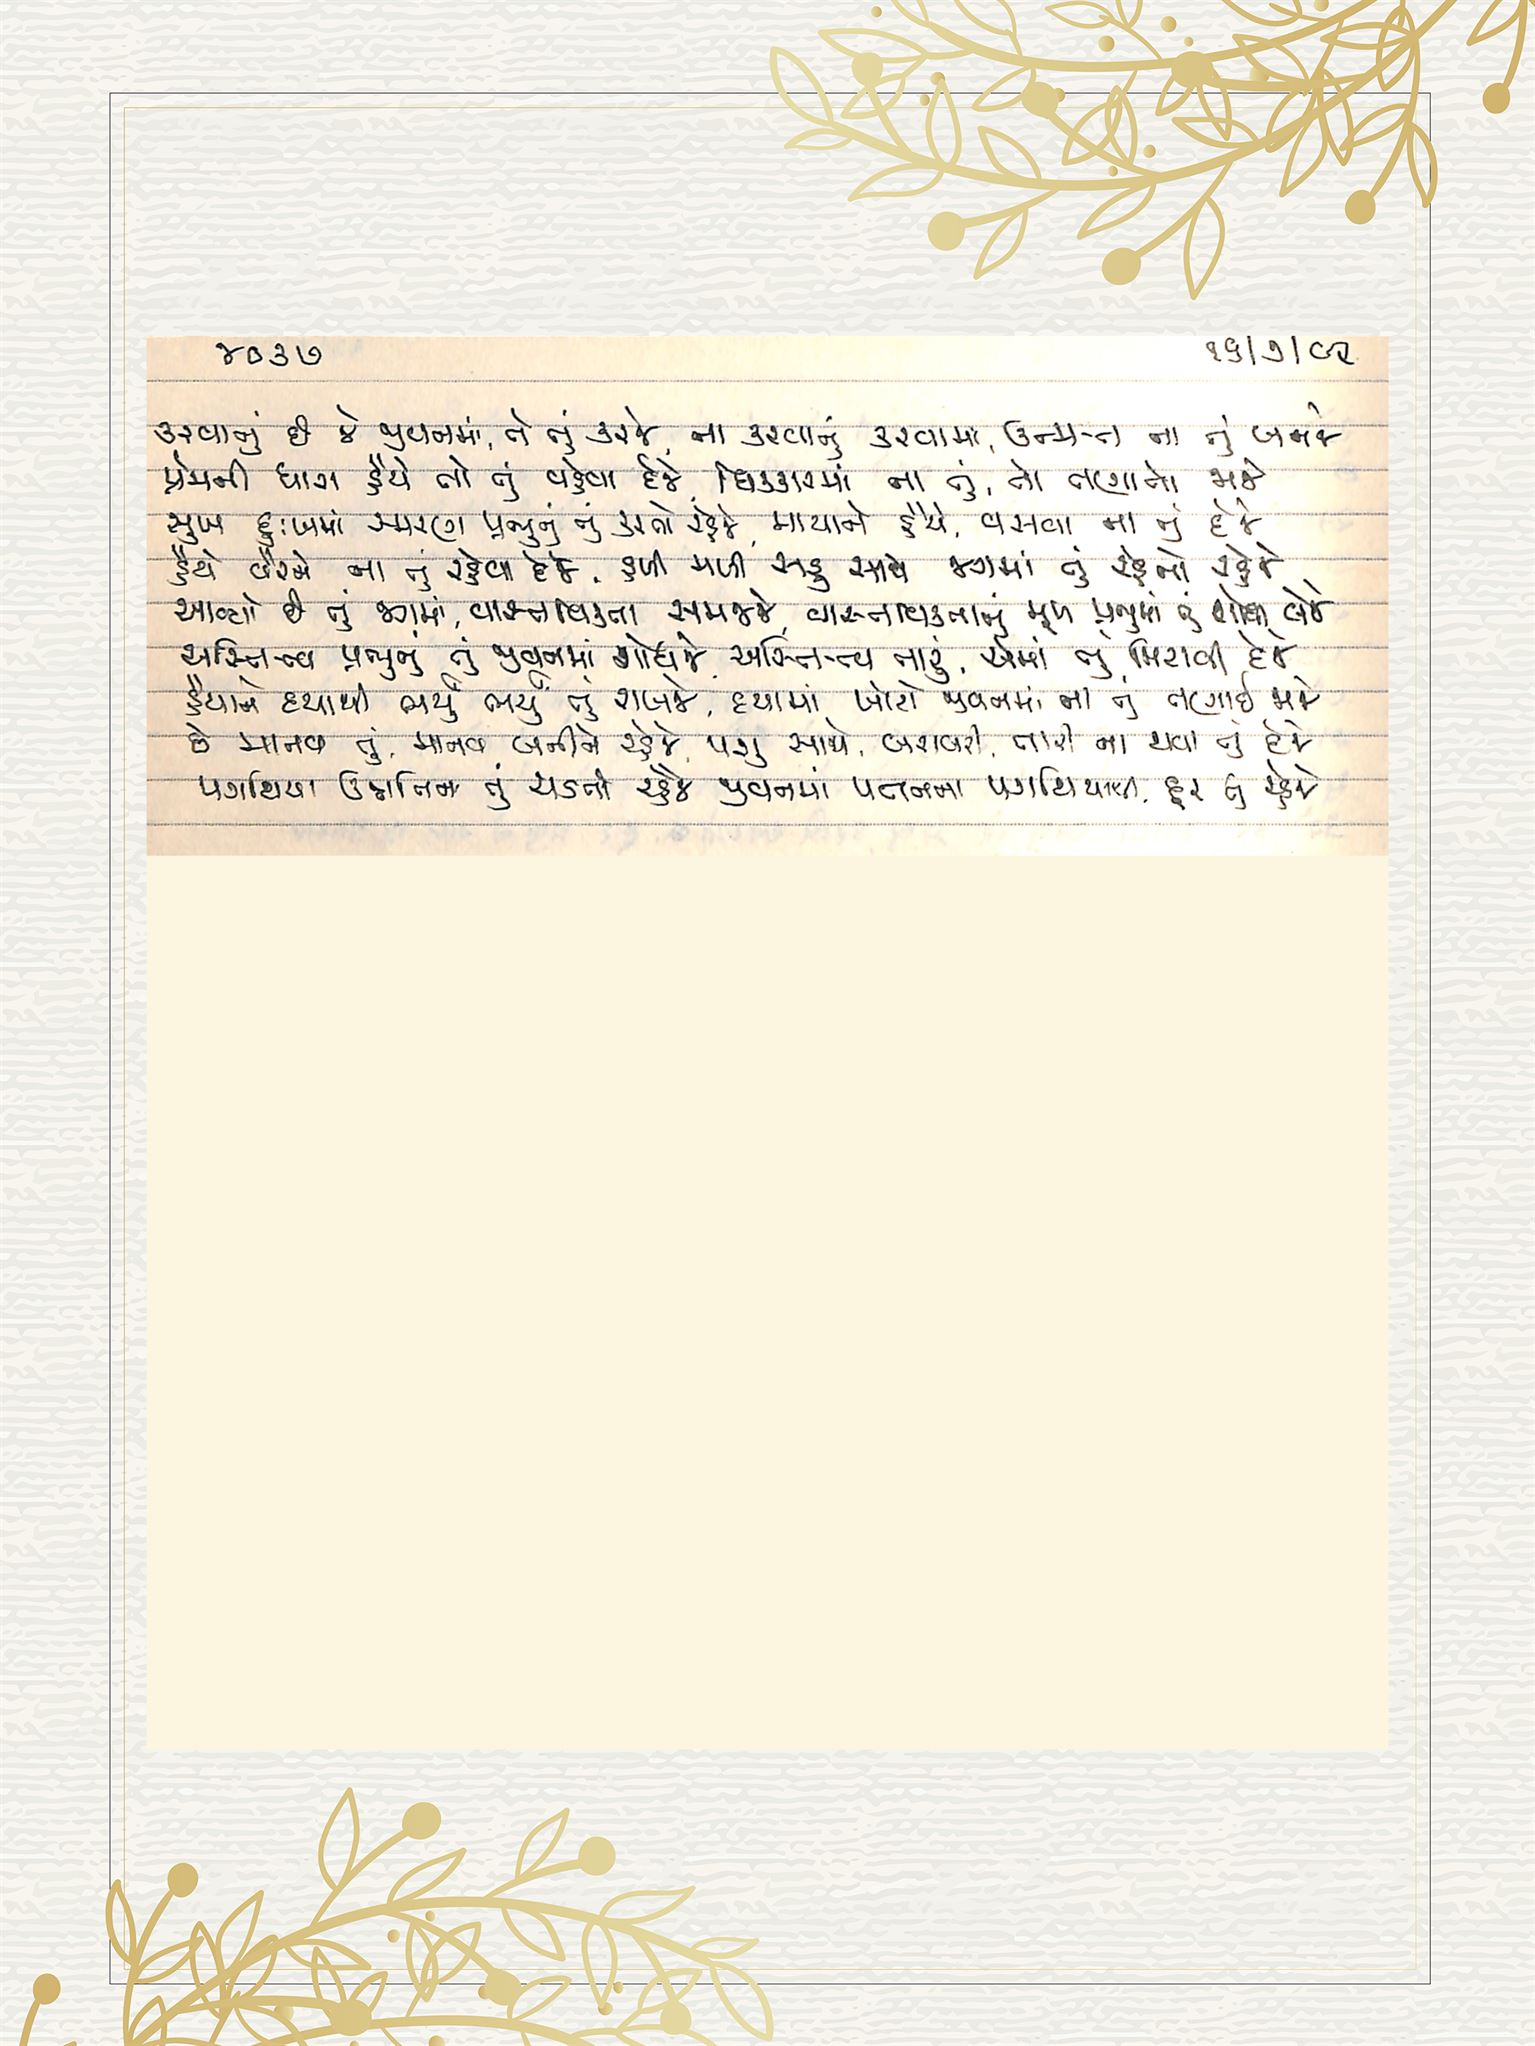 ૪૦૩૭ ૧૬/૭/૯૨
કરવાનું છે જે જીવનમાં, તે તું કરજે, ના કરવાનું કરવામાં, ઉન્મત્ત ના તું બનજે
પ્રેમની ધારા હૈયે તો તું વહેવા દેજે, ધિક્કારમાં ના તું, તો તણાતો જાજે
સુખ દુઃખમાં સ્મરણ પ્રભુનું તું કરતો રહેજે, માયાને હૈયે, વસવા ના તું દેજે
હૈયે વૈરને ના તું રહેવા દેજે, હળી મળી સહુ સાથે જગમાં તું રહેતો રહેજે
આવ્યો છે તું જગમાં, વાસ્તવિકતા સમજજે, વાસ્તવિકતાનું મૂળ પ્રભુમાં તું શોધી લેજે
અસ્તિત્વ પ્રભુનું તું જીવનમાં શોધજે, અસ્તિત્વ તારું, એમાં તું મિટાવી દેજે
હૈયાને દયાથી ભર્યું ભર્યું તું રાખજે, દયામાં ખોટો જીવનમાં ના તું તણાઈ જાજે
છે માનવ તું, માનવ બનીને રહેજે, પશુ સાથે, બરાબરી, તારી ના થવા તું દેજે
પગથિયા ઉન્નતિના તું ચડતો રહેજે જીવનમાં પતનના પગથિયાથી, દૂર તું રહેજે